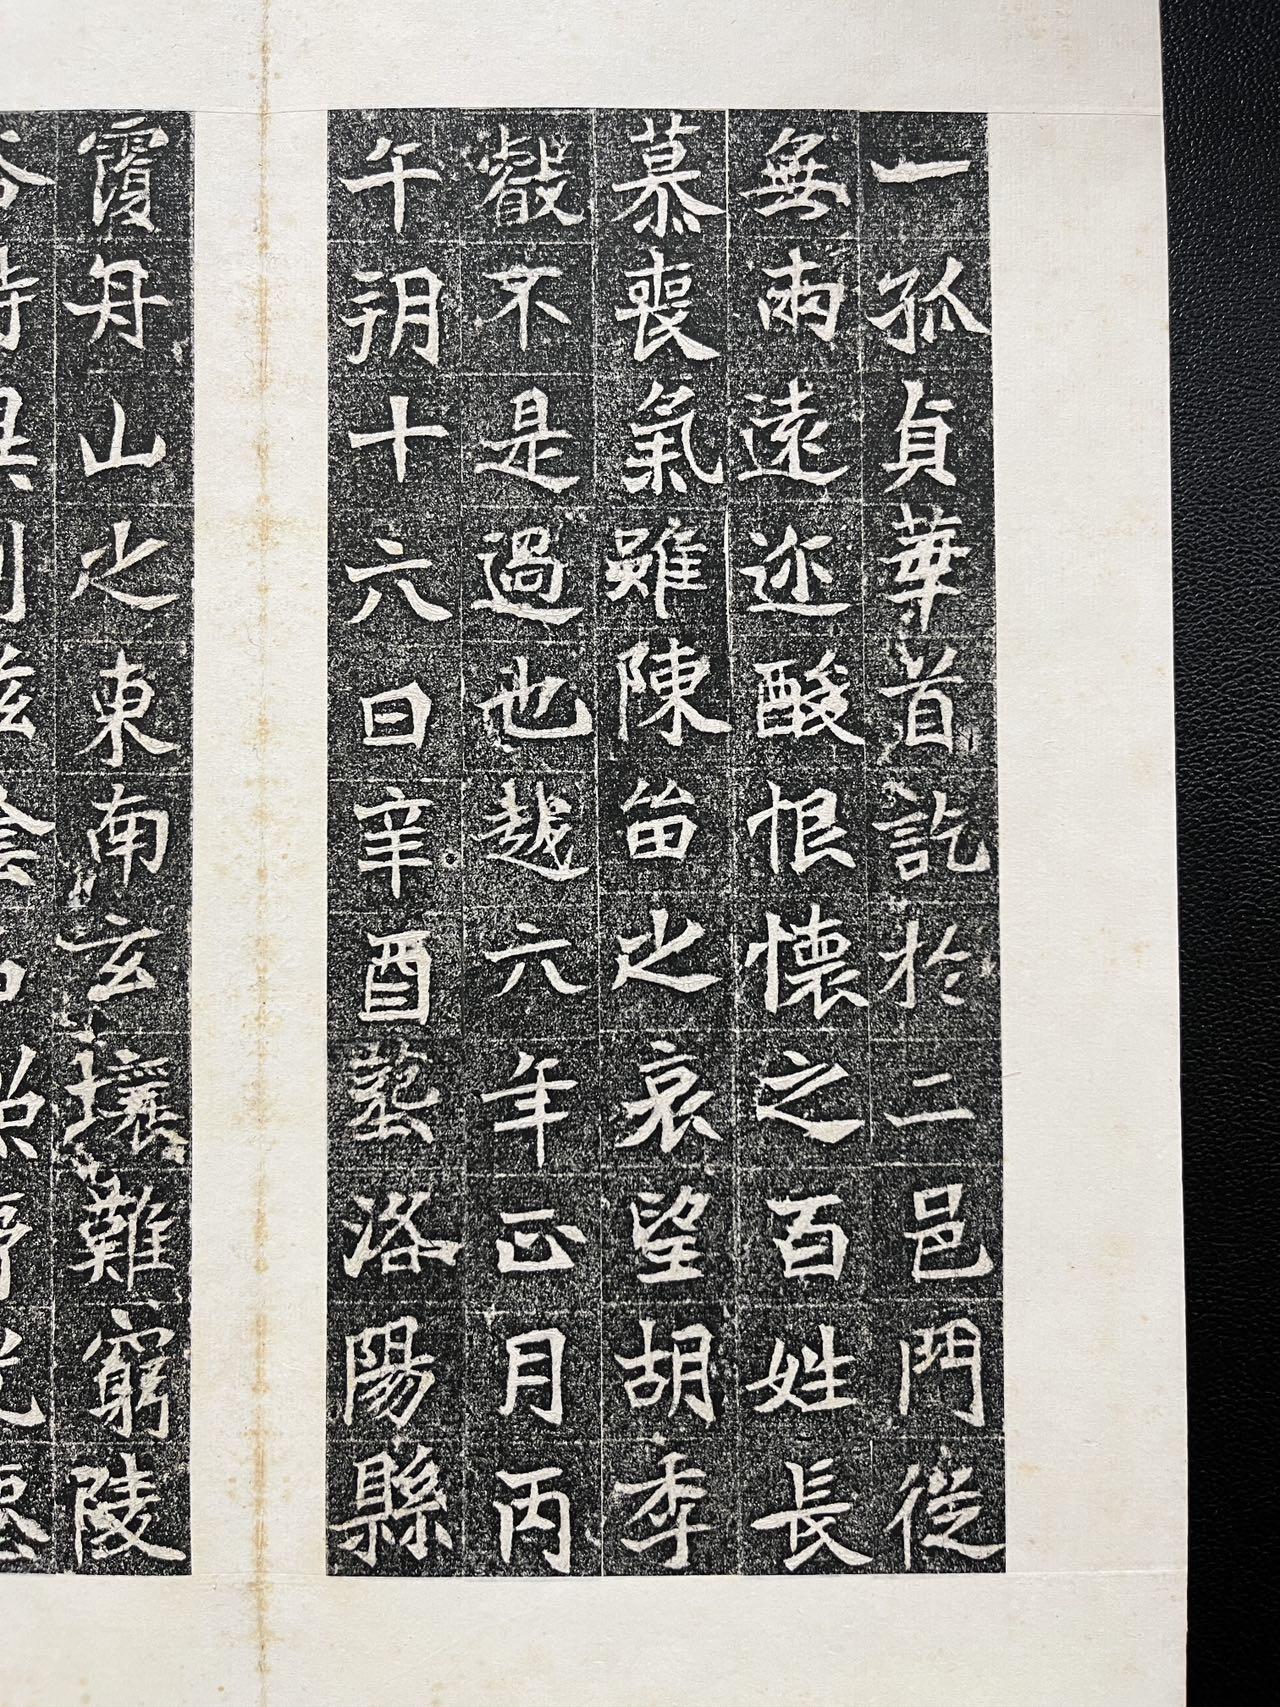 一孤貞華首訖於二邑門從
無兩遠迩酸恨懷之百姓長
慕喪氣雖陳畄之哀望胡季
叡不是過也越六年正月丙
午朔十六日辛酉葬洛陽縣
覆舟山之東南玄壤難窮陵